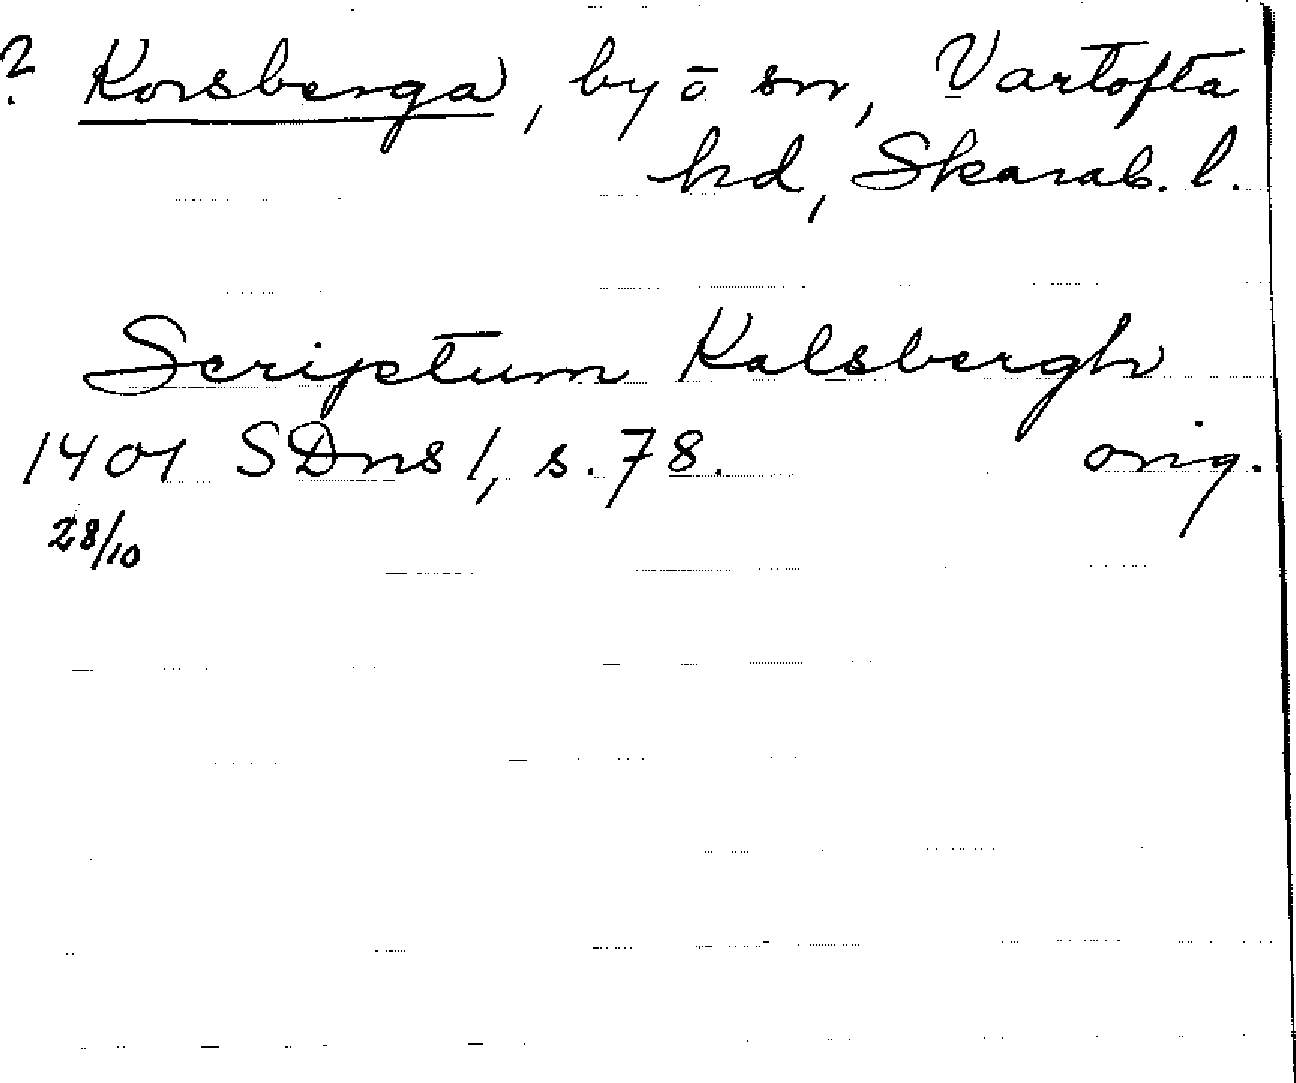 ? Korsberga, by ō sn, Vartofta
hd, Skarab. l.
Scriptum Kalsbergh
1401 SDns 1, s. 78. orig.
28/10